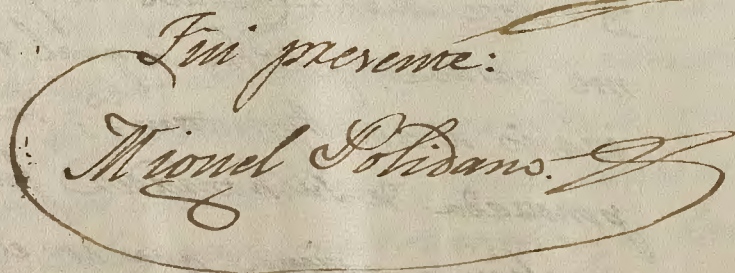 Fui presente:
Mig.uel Solidano.